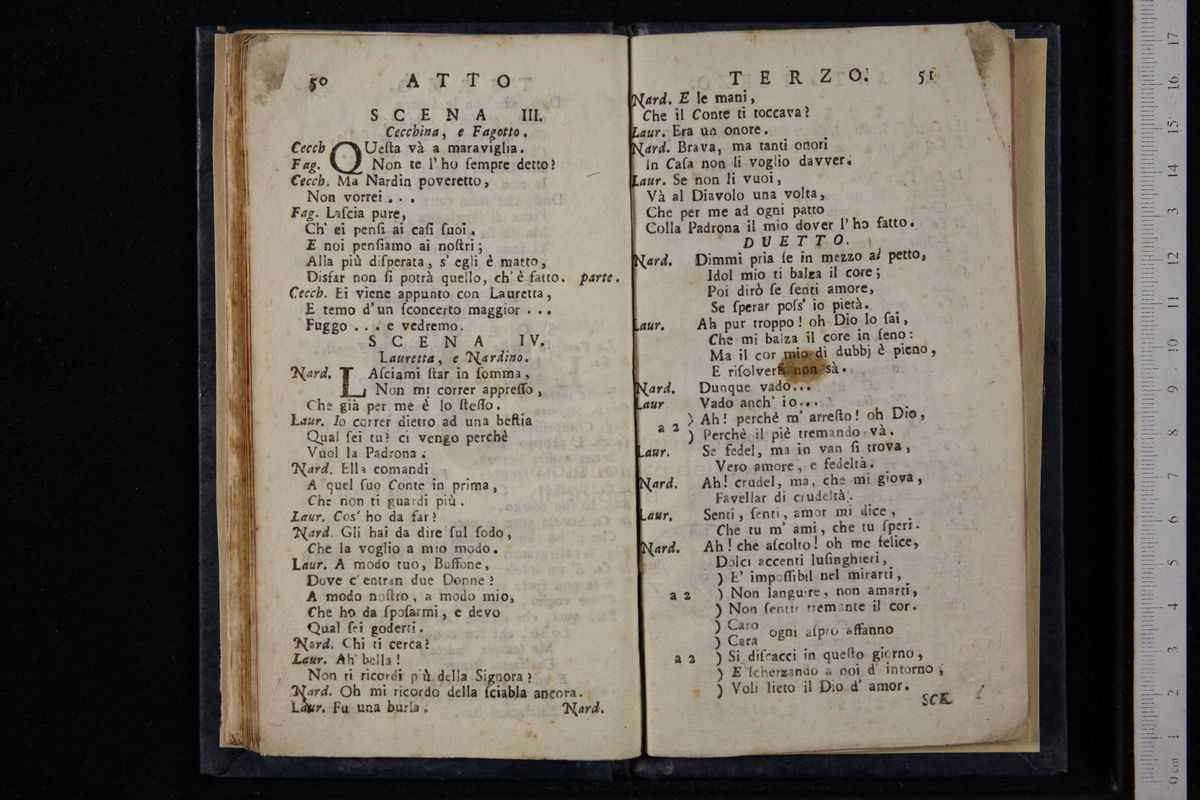 50 ATTO
SCENA III.
Cecchina, e Fagotto.
Cecch QUeſta và a maraviglia.
Fag. Non te l' ho ſempre detto?
Cecch. Ma Nardin poveretto,
Non vorrei . . .
Fag. Laſcia pure,
Ch' ei penſi ai caſi ſuoi.
E noi penſiamo ai noſtri;
Alla più diſperata, s' egli è matto,
Disfar non ſi potrà quello, ch' è fatto. parte.
Cecch. Ei viene appunto con Lauretta,
E temo d'un ſconcerto maggior . . .
Fuggo . . . e vedremo.
SCENA IV.
Lauretta, e Nardino.
Nard. LAſciami ſtar in ſomma,
Non mi correr appreſſo,
Che già per me è lo ſteſſo.
Laur. Io correr dietro ad una beſtia
Qual ſei tu? ci vengo perchè
Vuol la Padrona.
Nard. Ella comandi
A quel ſuo Conte in prima,
Che non ti guardi più.
Laur. Cos' ho da far?
Nard. Gli hai da dire ſul ſodo,
Che la voglio a mio modo.
Laur. A modo tuo, Buffone,
Dove c'entran due Donne?
A modo noſtro, a modo mio,
Che ho da ſpoſarmi, e devo
Qual ſei goderti.
Nard. Chi ti cerca?
Laur. Ah bella!
Non ti ricordi più della Signora?
Nard. Oh mi ricordo della ſciabla ancora.
Laur. Fu una burla.
Nard.
TERZO. 51
Nard. E le mani,
Che il Conte ti toccava?
Laur. Era un onore.
Nard. Brava, ma tanti onori
In Caſa non li voglio davver.
Laur. Se non li vuoi,
Và al Diavolo una volta,
Che per me ad ogni patto
Colla Padrona il mio dover l' ho fatto.
DUETTO.
Nard. Dimmi pria ſe in mezzo al petto,
Idol mio ti balza il core;
Poi dirò ſe ſenti amore,
Se ſperar poſs' io pietà.
Laur. Ah pur troppo! oh Dio lo ſai,
Che mi balza il core in ſeno:
Ma il cor mio di dubbj è pieno,
E riſolverſi non sà.
Nard. Dunque vado...
Laur Vado anch' io...
a 2 ) Ah! perchè m' arreſto! oh Dio,
) Perchè il piè tremando và.
Laur. Se fedel, ma in van ſi trova,
Vero amore, e fedeltà.
Nard. Ah! crudel, ma, che mi giova,
Favellar di crudeltà.
Laur. Senti, ſenti, amor mi dice,
Che tu m' ami, che tu ſperi.
Nard. Ah! che aſcolto! oh me felice,
Dolci accenti luſinghieri,
) E' impoſſibil nel mirarti,
a 2 ) Non languire, non amarti,
) Non ſentir tremante il cor.
) Caro
) Cara ogni aſpro affanno
a 2 ) Si diſcacci in queſto giorno,
) E ſcherzando a noi d' intorno;
) Voli lieto il Dio d' amor.
SCE